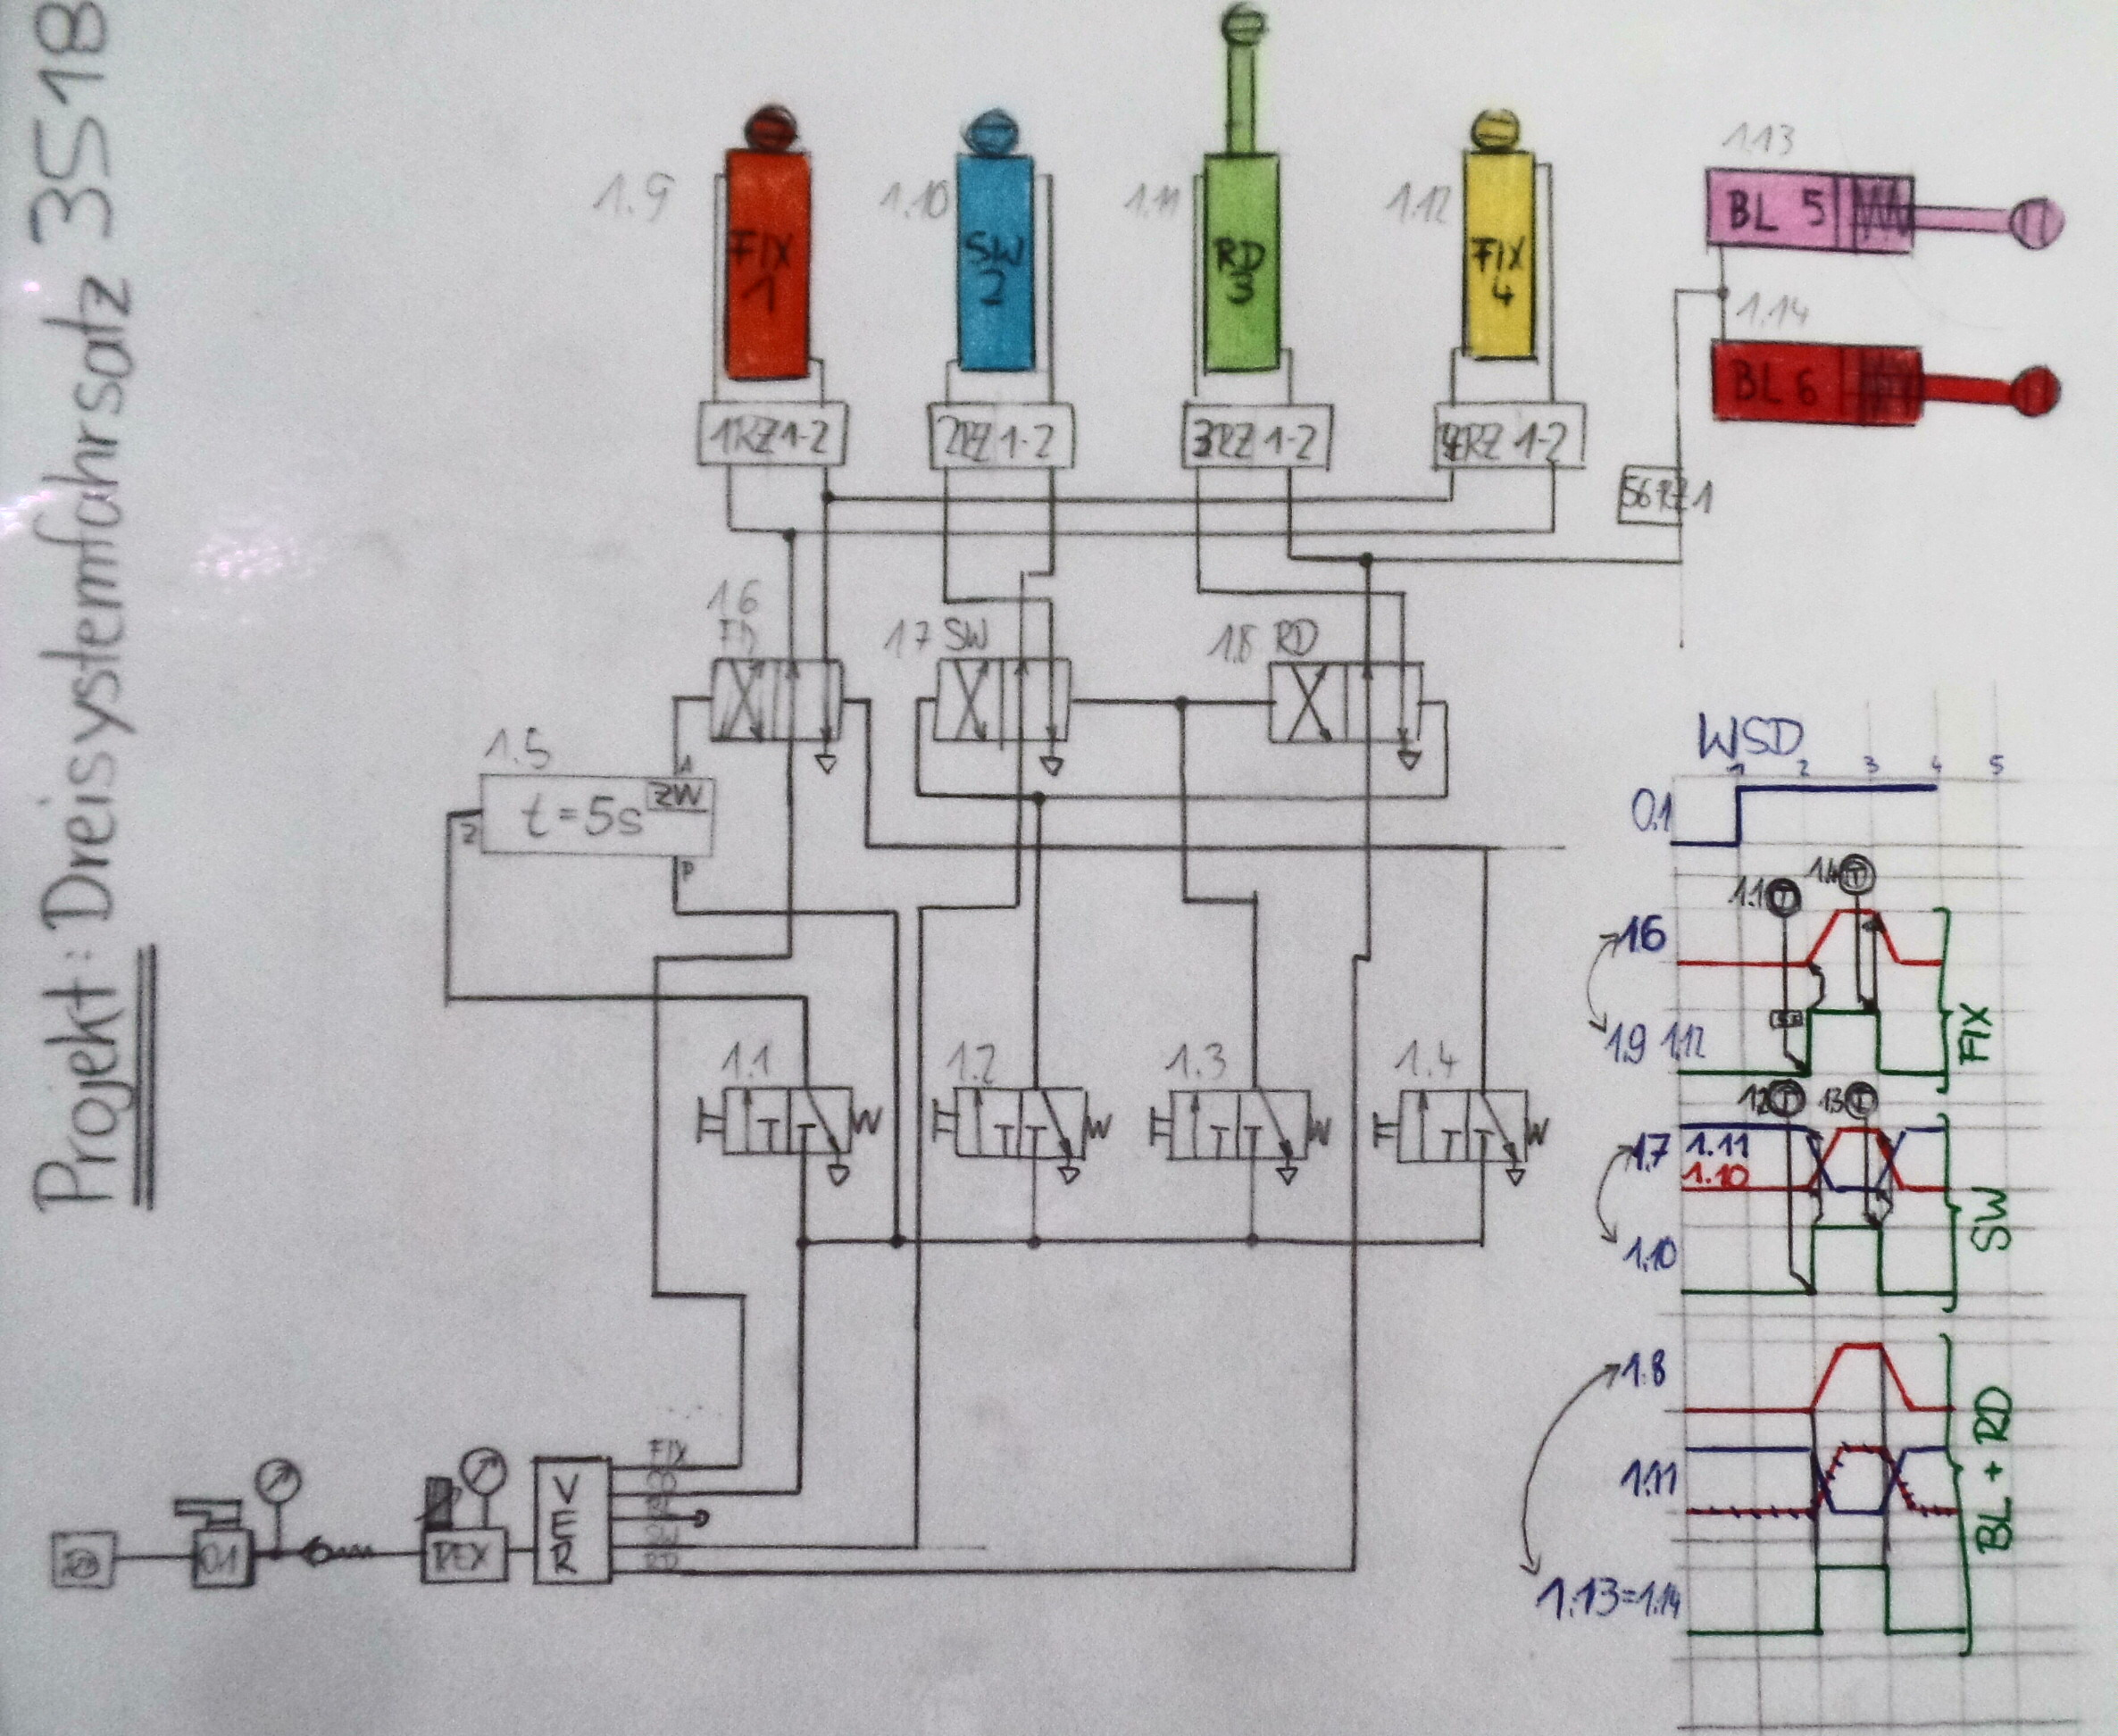 Projekt: Dreisystemfahrsatz 3S18
1.9
FIX
1
1.10
SW
2
1.11
RD
3
1.12
FIX
4
1.13
BL 5
1.14
BL 6
1RZ1-2
2RZ 1-2
3RZ 1-2
4RZ 1-2
56RZ1
1.6
1.7 SW
1.8 RD
1.5
A
ZW
t=5s
Z
P
1.1
1.2
1.3
1.4
FIX
SW
RD
V
E
R
0.1
REX
WSD
1 2 3 4 5
0.1
1.1 T
1.4 T
1.6
1.9 1.12
FIX
1.2 T
1.3 T
1.7
1.11
1.10
1.10
SW
1.8
1.11
1.13=1.14
BL + RD